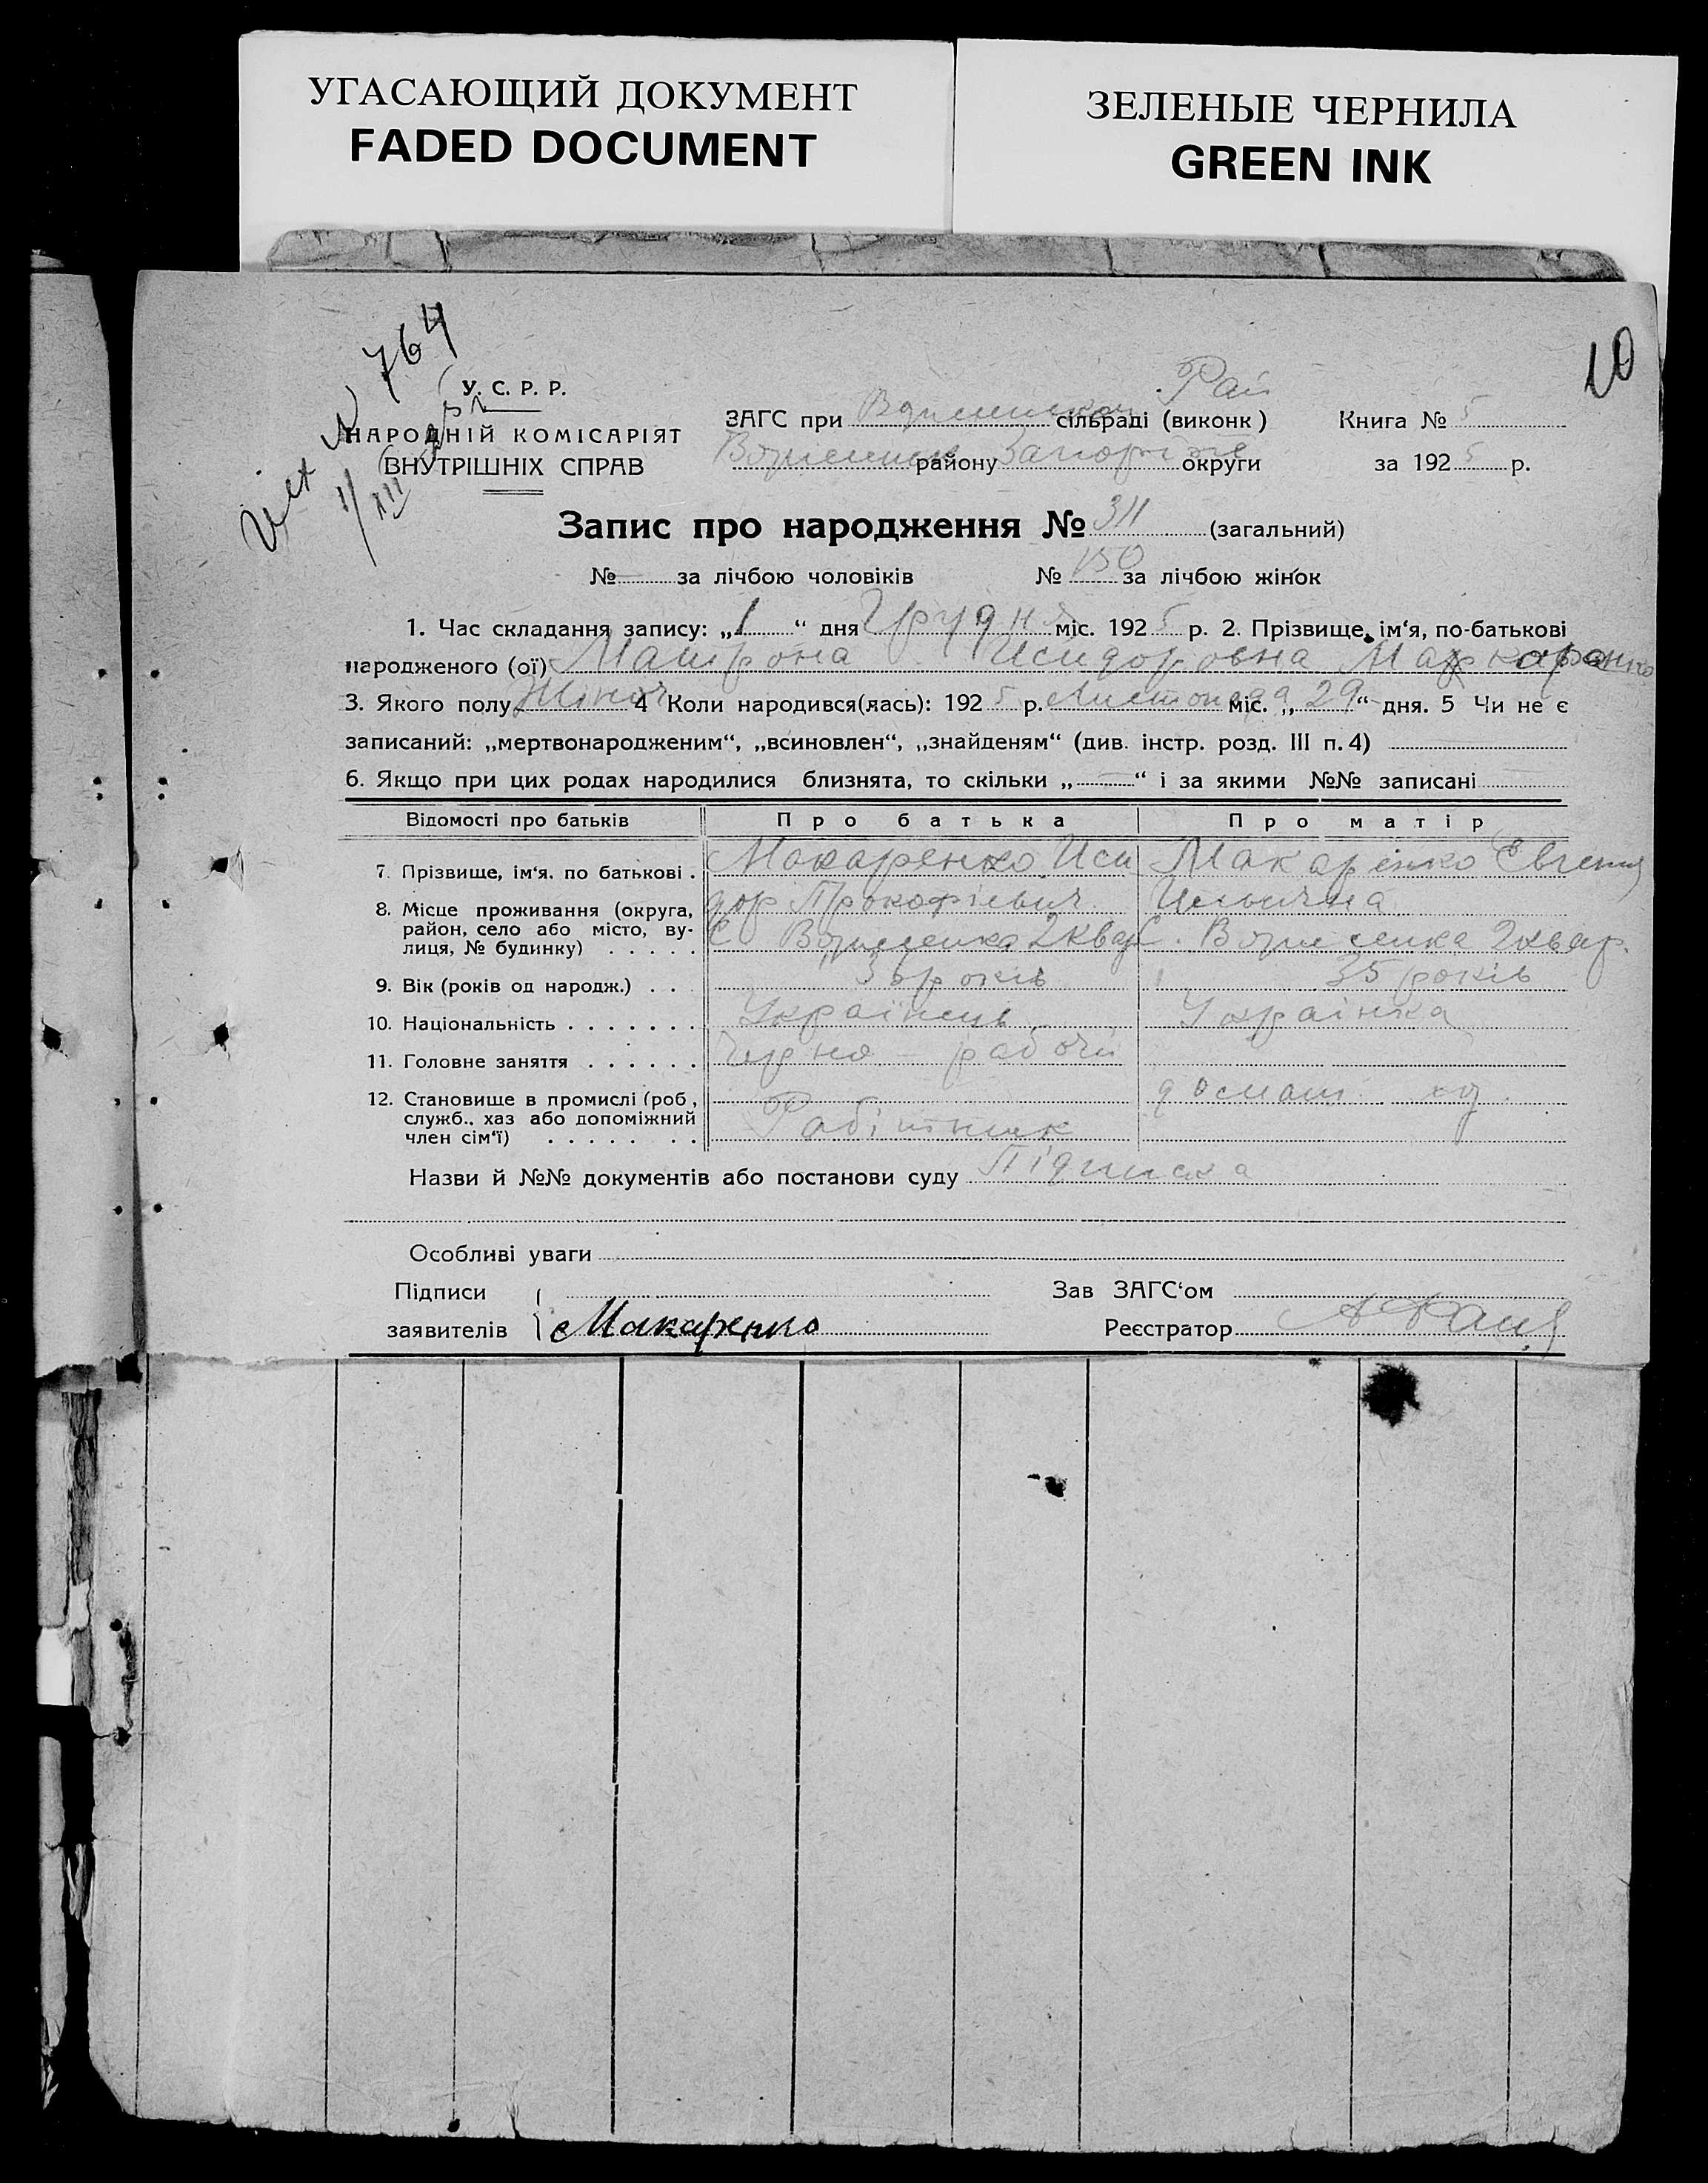 УГАСАЮЩИЙ ДОКУМЕНТ
FADED DOCUMENT
ЗЕЛЕНЫЕ ЧЕРНИЛА
GREEN INK
10
764
У. С. Р. Р.
НАРОДНІЙ КОМІСАРІЯТ
ВНУТРІШНІХ СПРАВ
1/XII
Рай
ЗАГС при сільраді (виконк) Книга № 5
району округи за 1925 р.
Запис про народження № 311 (загальний)
№ — за лічбою чоловіків № 150 за лічбою жінок
1. Час складання запису: „1“ дня Грудня міс. 1925 р. 2. Прізвище, ім‘я, по-батькові
народженого (ої) Матрона Исидоровна Макаренко
3. Якого полу Жіноч 4 Коли народився(лась): 1925 р. Листопада міс. „29“ дня. 5 Чи не є
записаний: „мертвонародженим“, „всиновлен“, „знайденям“ (див. інстр. розд. III п. 4)
6. Якщо при цих родах народилися близнята, то скільки „—“ і за якими №№ записані
Відомості про батьків Про батька Про матір
7. Прізвище, ім‘я, по батькові . Макаренко Иси Макаренко Євгения
дор Прокофіевич Ильична
8. Місце проживання (округа, район, село або місто, вулиця, № будинку) . . . . . С Вознесенка 2 квар С. Вознесенка 2 квар.
9. Вік (років од народж.) . . років 35 років
10. Національність . . . . . . . Українець Українка
11. Головне заняття . . . . . . рабочій
12. Становище в промислі (роб., служб., хаз або допоміжний член сім‘ї) . . . . . . . Робітник домаш. хоз.
Назви й №№ документів або постанови суду Підписка
Особливі уваги
Підписи Зав ЗАГС‘ом
заявителів Макаренко Реєстратор